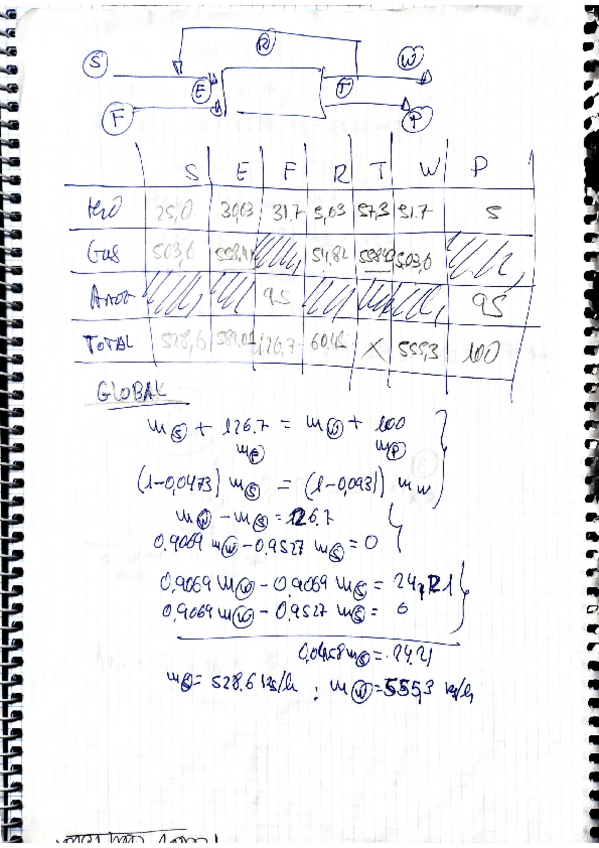 R
S W
E T
F P
S E F R T W P
H2O 25,0 30,63 31.7 5,63 57,3 51.7 5
Gas 503,6 558,42 54,82 558,42 503,6
95 95
TOTAL 528,6 126,7 60,45 X 555,3 100
GLOBAL
m S + 126.7 = m W + 100
m F m P
(1-0,0473) m S = (1-0,0931) m W
m W - m S = 26.7
0.9069 m W - 0.9527 m S = 0
0,9069 m W - 0,9069 m S = 24,21
0,9069 m W - 0,9527 m S = 0
0,0458 m S = 24.21
m S = 528.6 kg/h ; m W = 555,3 kg/h